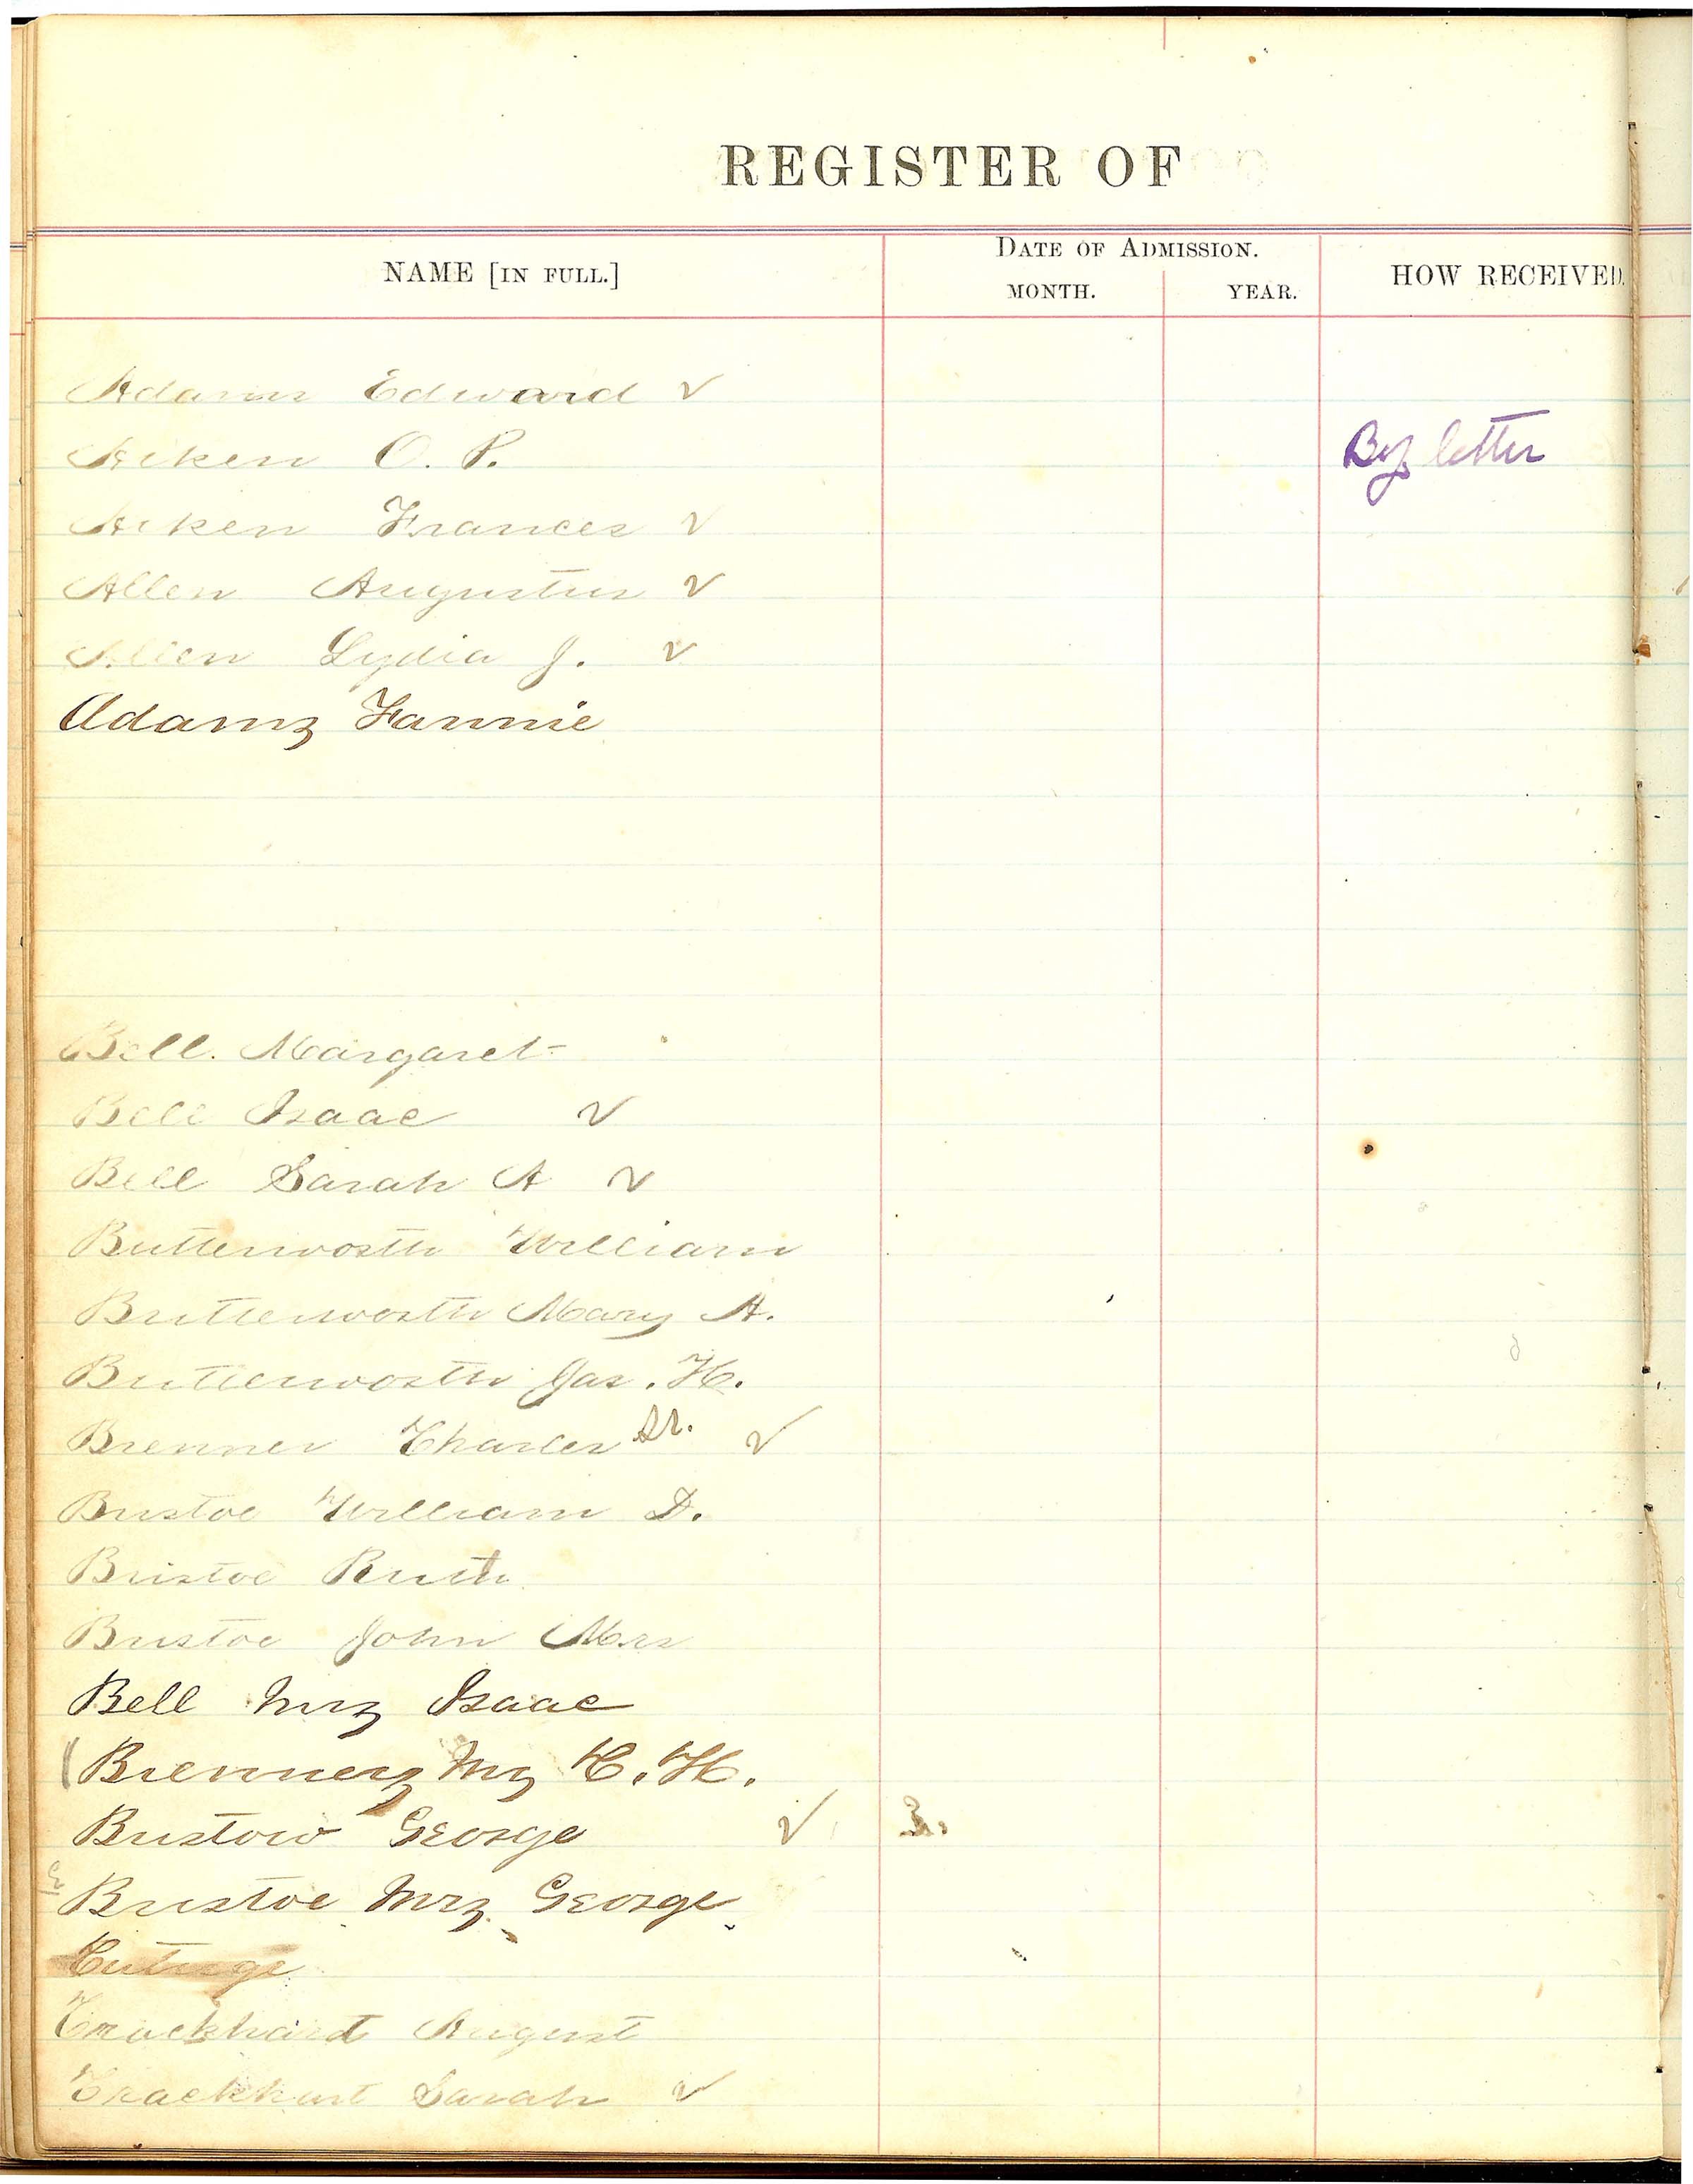 REGISTER OF
NAME [IN FULL.]
DATE OF ADMISSION.
MONTH.
YEAR.
HOW RECEIVED.
Adams Edward ✓
Aiken O. P.
By letter
Aiken Frances ✓
Allen Augustus ✓
Allen Lydia J. ✓
Adams Fannie
Bell. Margaret
Bell Isaac ✓
Bell Sarah A ✓
Butterworth William
Butterworth Mary A.
Butterworth Jas. H.
Brenner Charles Sr. ✓
Bristoe William D.
Bristoe Ruth
Bristoe John Mrs
Bell Mrs Isaac
Brenners Mrs C. H.
Bristow George ✓
Bristoe Mrs. George
Crackhart August
Crackhart Sarah ✓